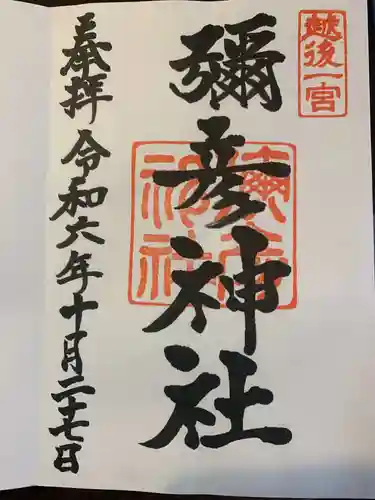 越後一宮
彌彦神社
奉拝 令和六年十月二十七日
彌彦神社